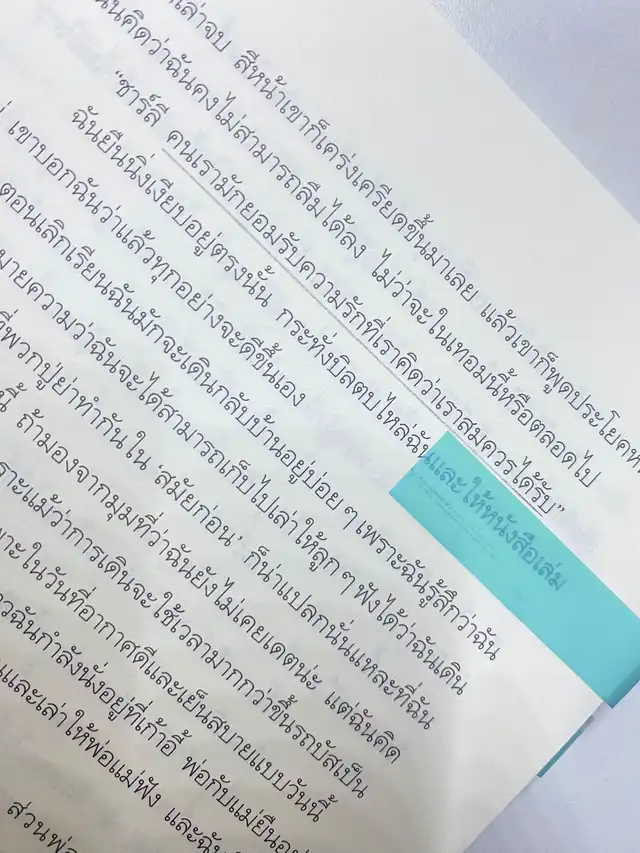 เล่าจบ สีหน้าเขาก็เคร่งเครียดขึ้นมาเลย แล้วเขาก็พูดประโยค
ฉันคิดว่าฉันคงไม่สามารถลืมได้ลง ไม่ว่าจะในเทอมนี้หรือตลอดไป
“ชาร์ลี คนเรามักยอมรับความรักที่เราคิดว่าเราสมควรได้รับ”
ฉันยืนนิ่งเงียบอยู่ตรงนั้น กระทั่งบิลตบไหล่ฉันและให้หนังสือเล่ม
เขาบอกฉันว่าแล้วทุกอย่างจะดีขึ้นเอง
ตอนเลิกเรียนฉันมักจะเดินกลับบ้านอยู่บ่อย ๆ เพราะฉันรู้สึกว่าฉัน
ความว่าฉันจะได้สามารถเก็บไปเล่าให้ลูก ๆ ฟังได้ว่าฉันเดิน
ที่พวกปู่ย่าทำกันใน ‘สมัยก่อน’ ก็น่าแปลกนั่นแหละที่ฉัน
ถ้ามองจากมุมที่ว่าฉันยังไม่เคยเดตน่ะ แต่ฉันคิด
แม้ว่าการเดินจะใช้เวลามากกว่าขึ้นรถบัสเป็น
ในวันที่อากาศดีและเย็นสบายแบบวันนี้
ฉันกำลังนั่งอยู่ที่เก้าอี้ พ่อกับแม่ยืน
และเล่าให้พ่อแม่ฟัง และ
ส่วน